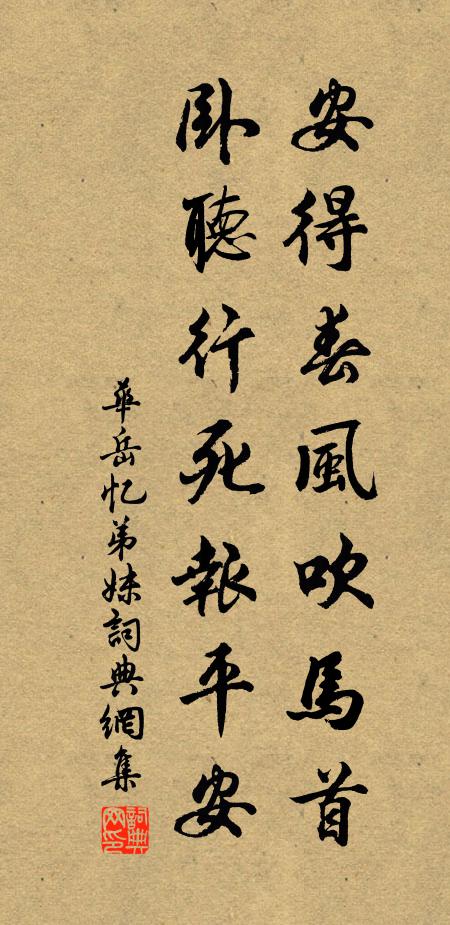 安得春風吹馬首
臥聽行死報平安
華岳忆弟妹詞典網集
詞典網印